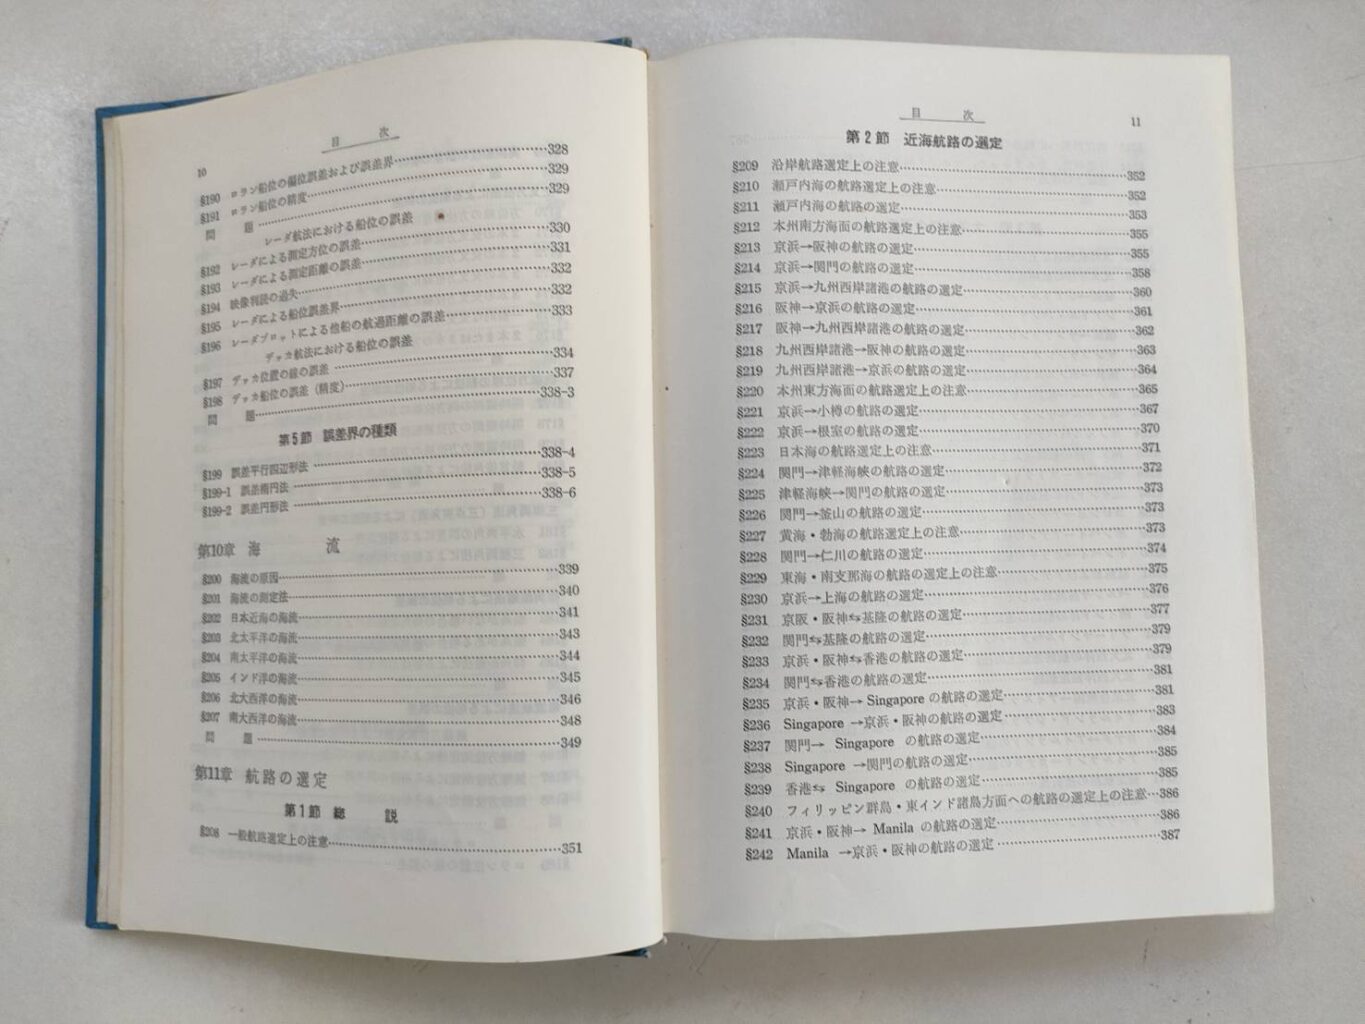 目 次
10
§190 ロラン船位の偏位誤差および誤差界…328
§191 ロラン船位の精度…329
問 題…329
レーダ航法における船位の誤差
§192 レーダによる測定方位の誤差…330
§193 レーダによる測定距離の誤差…331
§194 映像判読の過失…332
§195 レーダによる船位誤差界…332
§196 レーダプロットによる他船の航過距離の誤差…333
デッカ航法における船位の誤差
§197 デッカ位置の線の誤差…334
§198 デッカ船位の誤差(精度)…337
問 題…338-3
第5節 誤差界の種類
§199 誤差平行四辺形法…338-4
§199-1 誤差楕円法…338-5
§199-2 誤差円形法…338-6
第10章 海 流
§200 海流の原因…339
§201 海流の測定法…340
§202 日本近海の海流…341
§203 北太平洋の海流…343
§204 南太平洋の海流…344
§205 インド洋の海流…345
§206 北大西洋の海流…346
§207 南大西洋の海流…348
問 題…349
第11章 航路の選定
第1節 総 説
§208 一般航路選定上の注意…351
目 次
11
第2節 近海航路の選定
§209 沿岸航路選定上の注意…352
§210 瀬戸内海の航路選定上の注意…352
§211 瀬戸内海の航路の選定…353
§212 本州南方海面の航路選定上の注意…355
§213 京浜→阪神の航路の選定…355
§214 京浜→関門の航路の選定…358
§215 京浜→九州西岸諸港の航路の選定…360
§216 阪神→京浜の航路の選定…361
§217 阪神→九州西岸諸港の航路の選定…362
§218 九州西岸諸港→阪神の航路の選定…363
§219 九州西岸諸港→京浜の航路の選定…364
§220 本州東方海面の航路選定上の注意…365
§221 京浜→小樽の航路の選定…367
§222 京浜→根室の航路の選定…370
§223 日本海の航路選定上の注意…371
§224 関門→津軽海峡の航路の選定…372
§225 津軽海峡→関門の航路の選定…373
§226 関門→釜山の航路の選定…373
§227 黄海・勃海の航路選定上の注意…373
§228 関門→仁川の航路の選定…374
§229 東海・南支那海の航路の選定上の注意…375
§230 京浜→上海の航路の選定…376
§231 京阪・阪神⇆基隆の航路の選定…377
§232 関門⇆基隆の航路の選定…379
§233 京浜・阪神⇆香港の航路の選定…379
§234 関門⇆香港の航路の選定…381
§235 京浜・阪神→ Singapore の航路の選定…381
§236 Singapore →京浜・阪神の航路の選定…383
§237 関門→ Singapore の航路の選定…384
§238 Singapore →関門の航路の選定…385
§239 香港⇆ Singapore の航路の選定…385
§240 フィリッピン群島・東インド諸島方面への航路の選定上の注意…386
§241 京浜・阪神→ Manila の航路の選定…386
§242 Manila →京浜・阪神の航路の選定…387